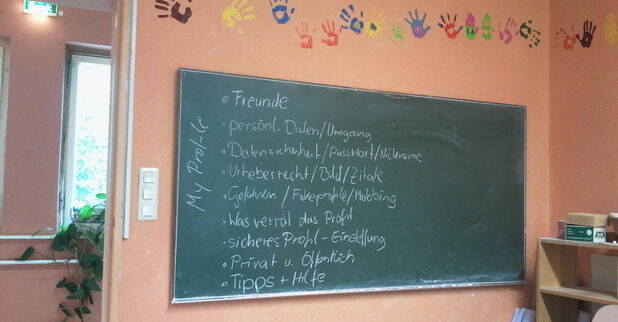 My Profile
Freunde
persönl. Daten/Umgang
Datensicherheit/Passwort/Nickname
Urheberrecht/Bild/Zitate
Gefahren/Fakeprofile/Mobbing
Was verrät das Profil
sicheres Profil-Einstellung
Privat u. Öffentlich
Tipps + Hilfe